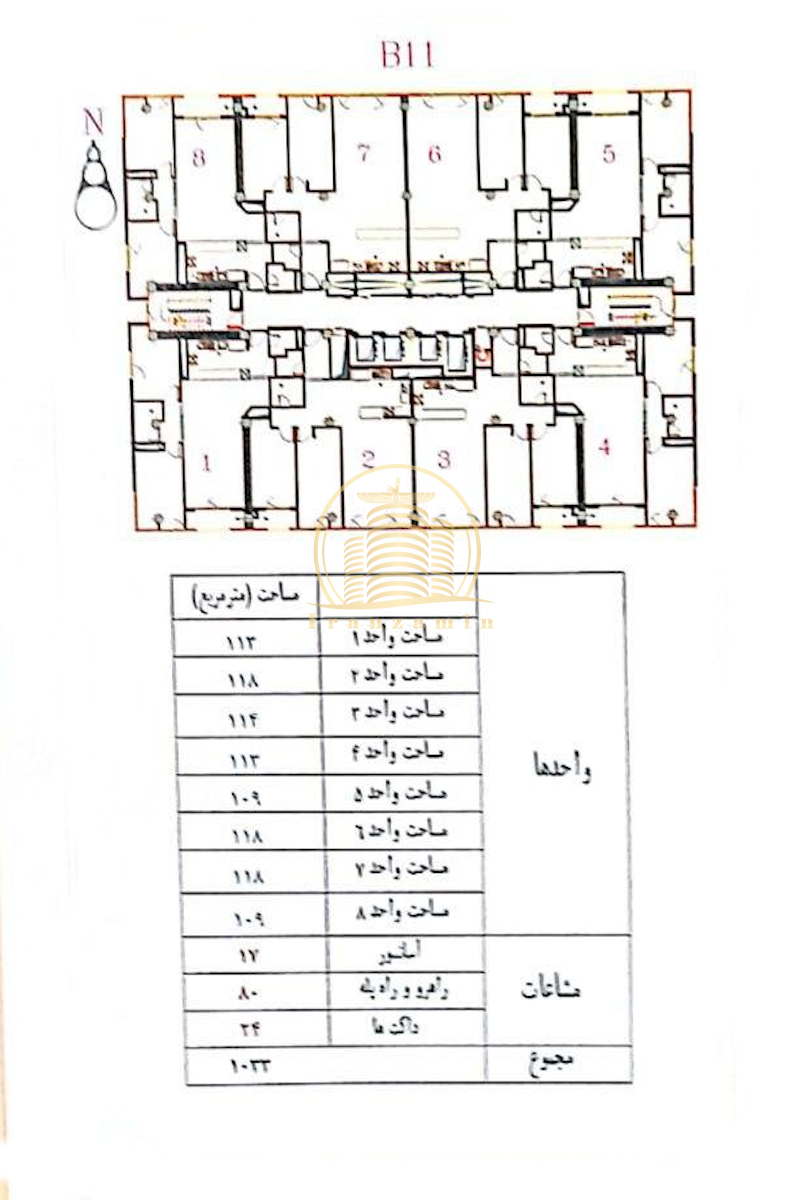 B11
N
8 7 6 5
1 2 3 4
Iranzamin
مساحت (مترمربع)
مساحت واحد ۱ ۱۱۳
مساحت واحد ۲ ۱۱۸
مساحت واحد ۳ ۱۱۴
مساحت واحد ۴ ۱۱۳
واحدها
مساحت واحد ۵ ۱۰۹
مساحت واحد ۶ ۱۱۸
مساحت واحد ۷ ۱۱۸
مساحت واحد ۸ ۱۰۹
آسانسور ۱۷
مشاعات راهرو و راه پله ۸۰
داکت ها ۲۴
مجموع ۱۰۳۳